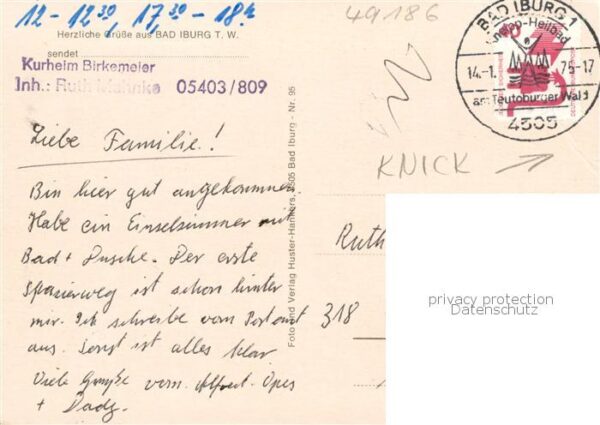 12-12,30, 17,30 - 18 h
49186
Herzliche Grüße aus BAD IBURG T. W.
sendet
Kurheim Birkemeier
Inh.: Ruth Mahnke 05403/809
BAD IBURG 1
Kneipp-Heilbad
14.-1. 75-17
am Teutoburger Wald
4505
KNICK
Liebe Familie!
Bin hier gut angekommen.
Habe ein Einzelzimmer mit
Bad + Dusche. Der erste
Spazierweg ist schon hinter
mir. Ich schreibe vom Postamt
aus. Sonst ist alles klar
Viele Grüße vom
+
Foto und Verlag Huster-Hamfors, 4505 Bad Iburg - Nr. 95
Ruth
318
privacy protection
Datenschutz